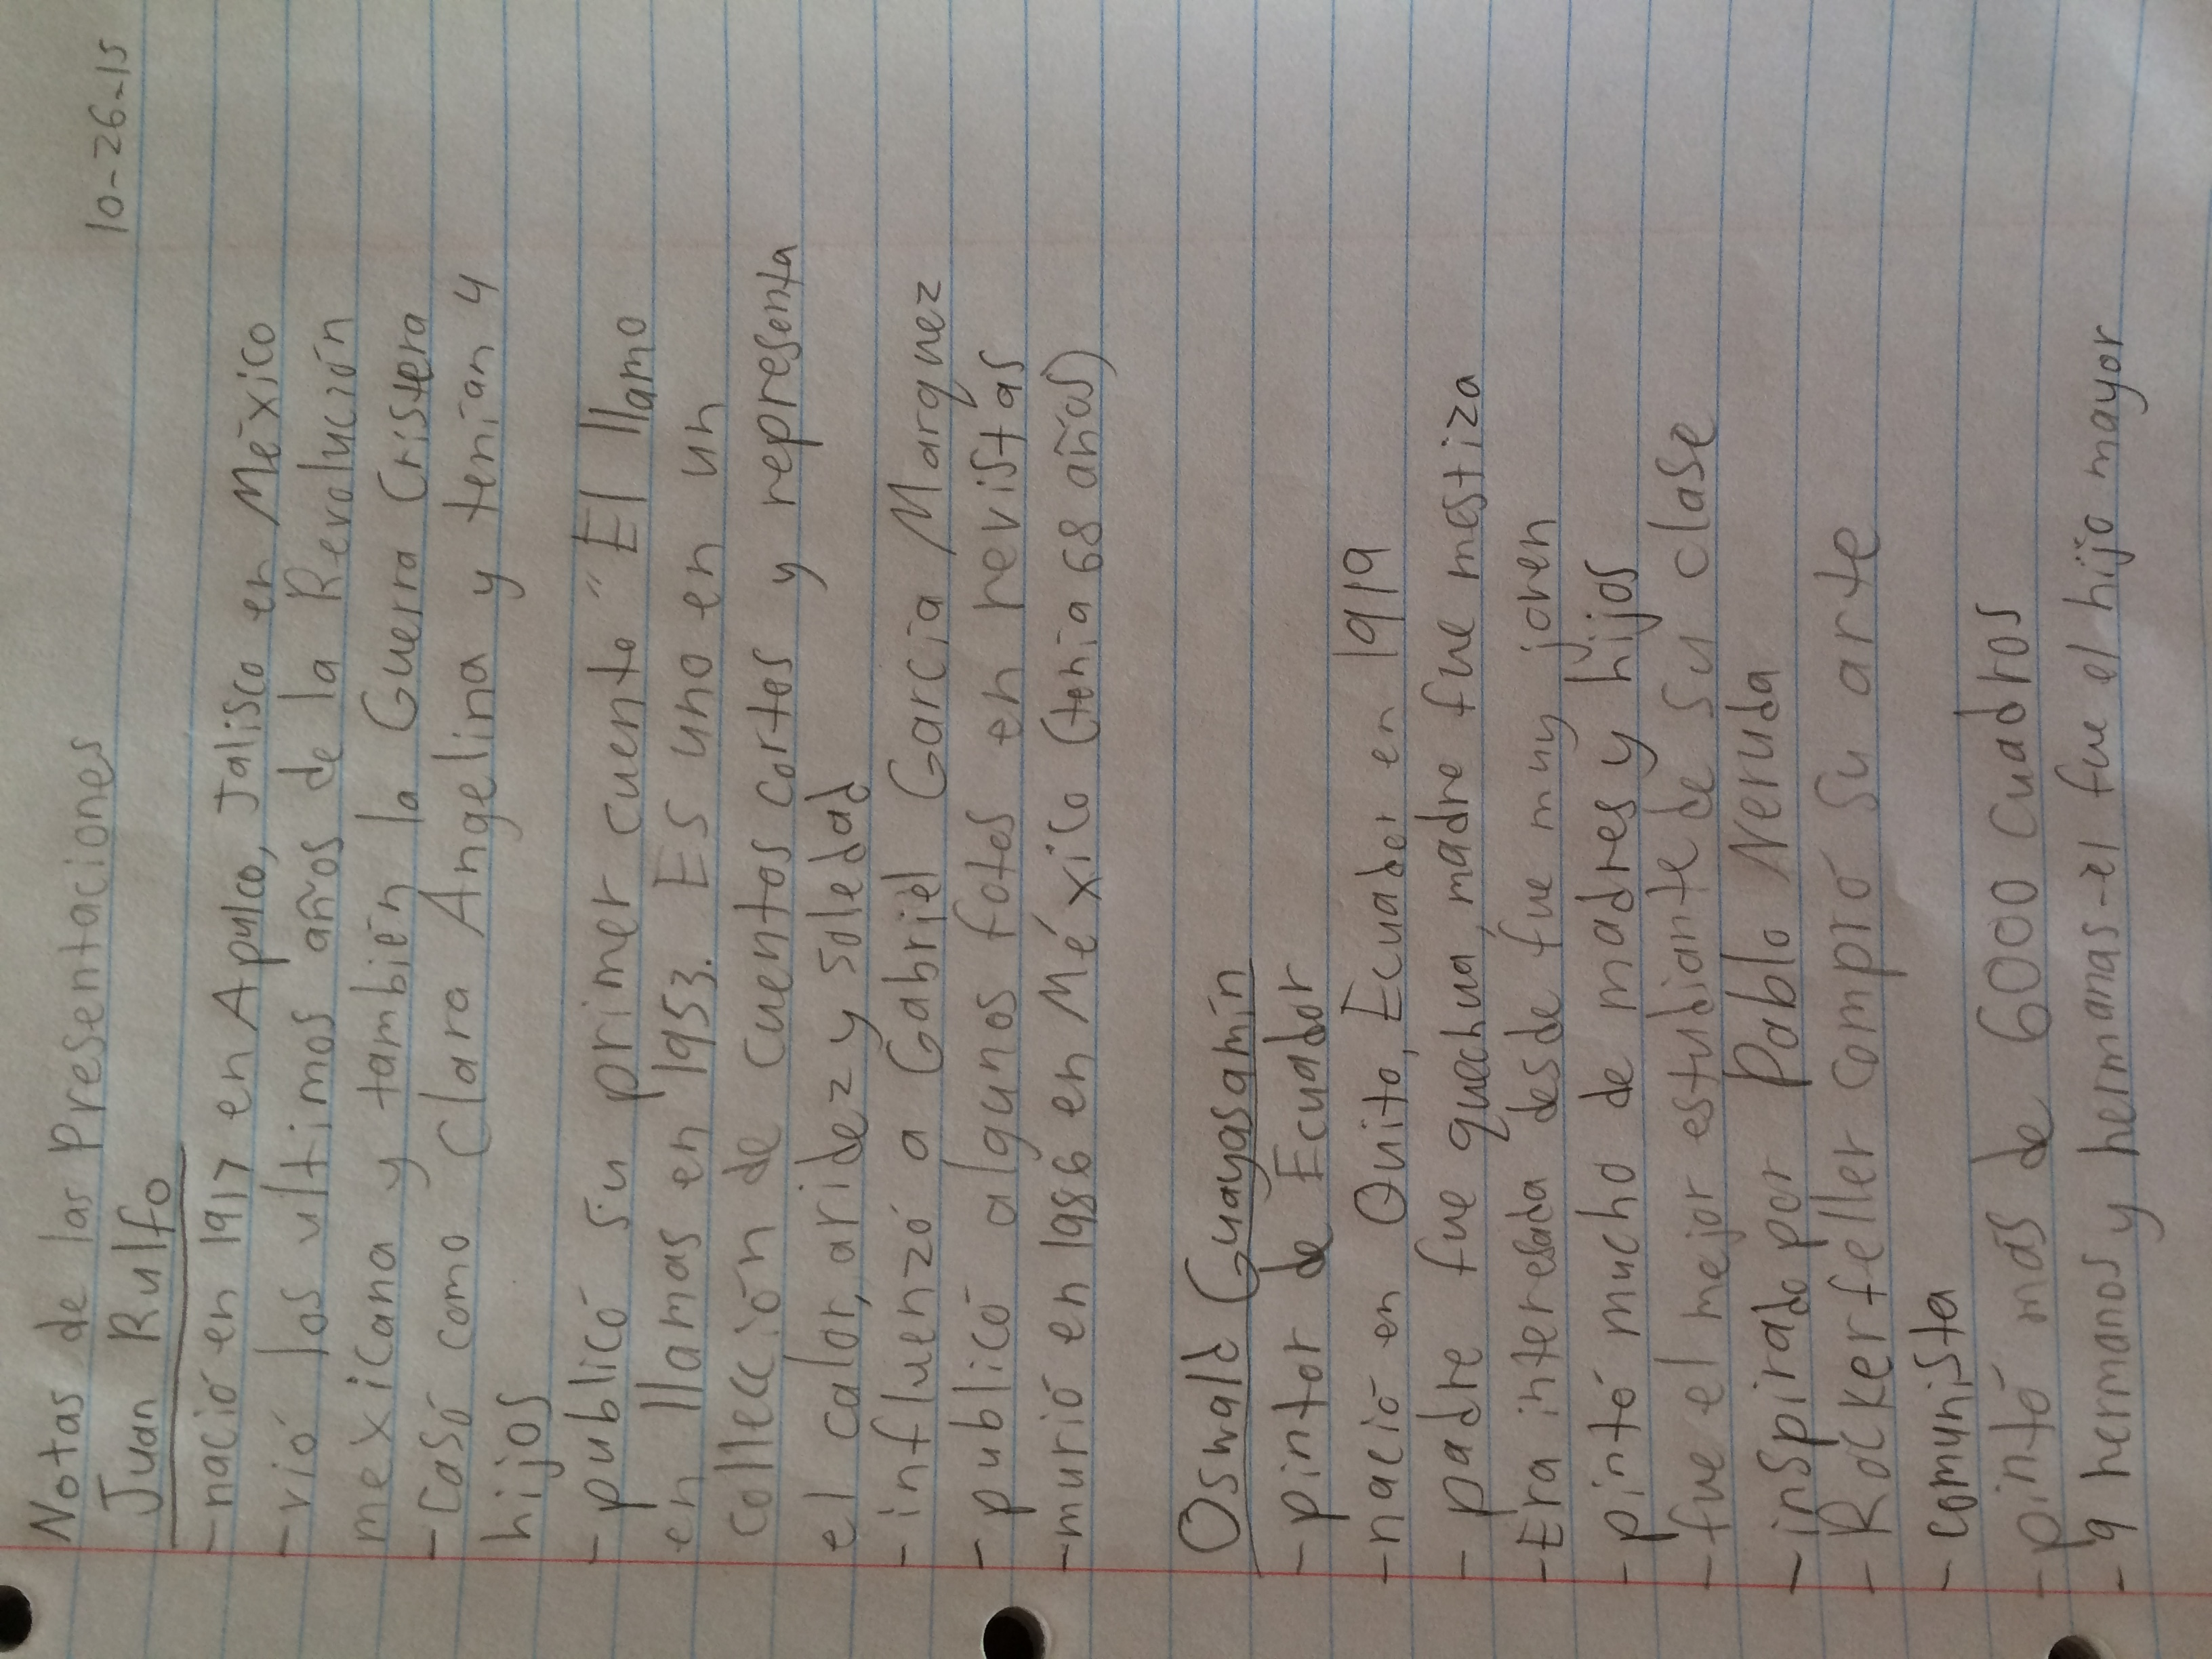 10-26-15
Notas de las Presentaciones
Juan Rulfo
- nació en 1917 en Apulco, Jalisco en México
- vió los ultimos años de la Revolución
mexicana y también la Guerra Cristera
- Casó como Clara Angelina y tenían 4
hijos
- publicó su primer cuento "El llamo
en llamas en 1953. Es uno en un
collección de cuentos cortos y representa
el calor, aridez y soledad
- influenzó a Gabriel García Marquez
- publicó algunos fotos en revistas
- murió en 1986 en México (tenía 68 años)
Oswald Guayasamín
- pintor de Ecuador
- nació en Quito, Ecuador en 1919
- padre fue quechua, madre fue mestiza
- Era interesada desde fue muy joven
- pintó mucho de madres y hijos
- fue el mejor estudiante de su clase
- inspirado por Pablo Neruda
- Rockerfeller compró su arte
- comunista
- pintó más de 6000 cuadros
- 9 hermanos y hermanas - el fue el hijo mayor